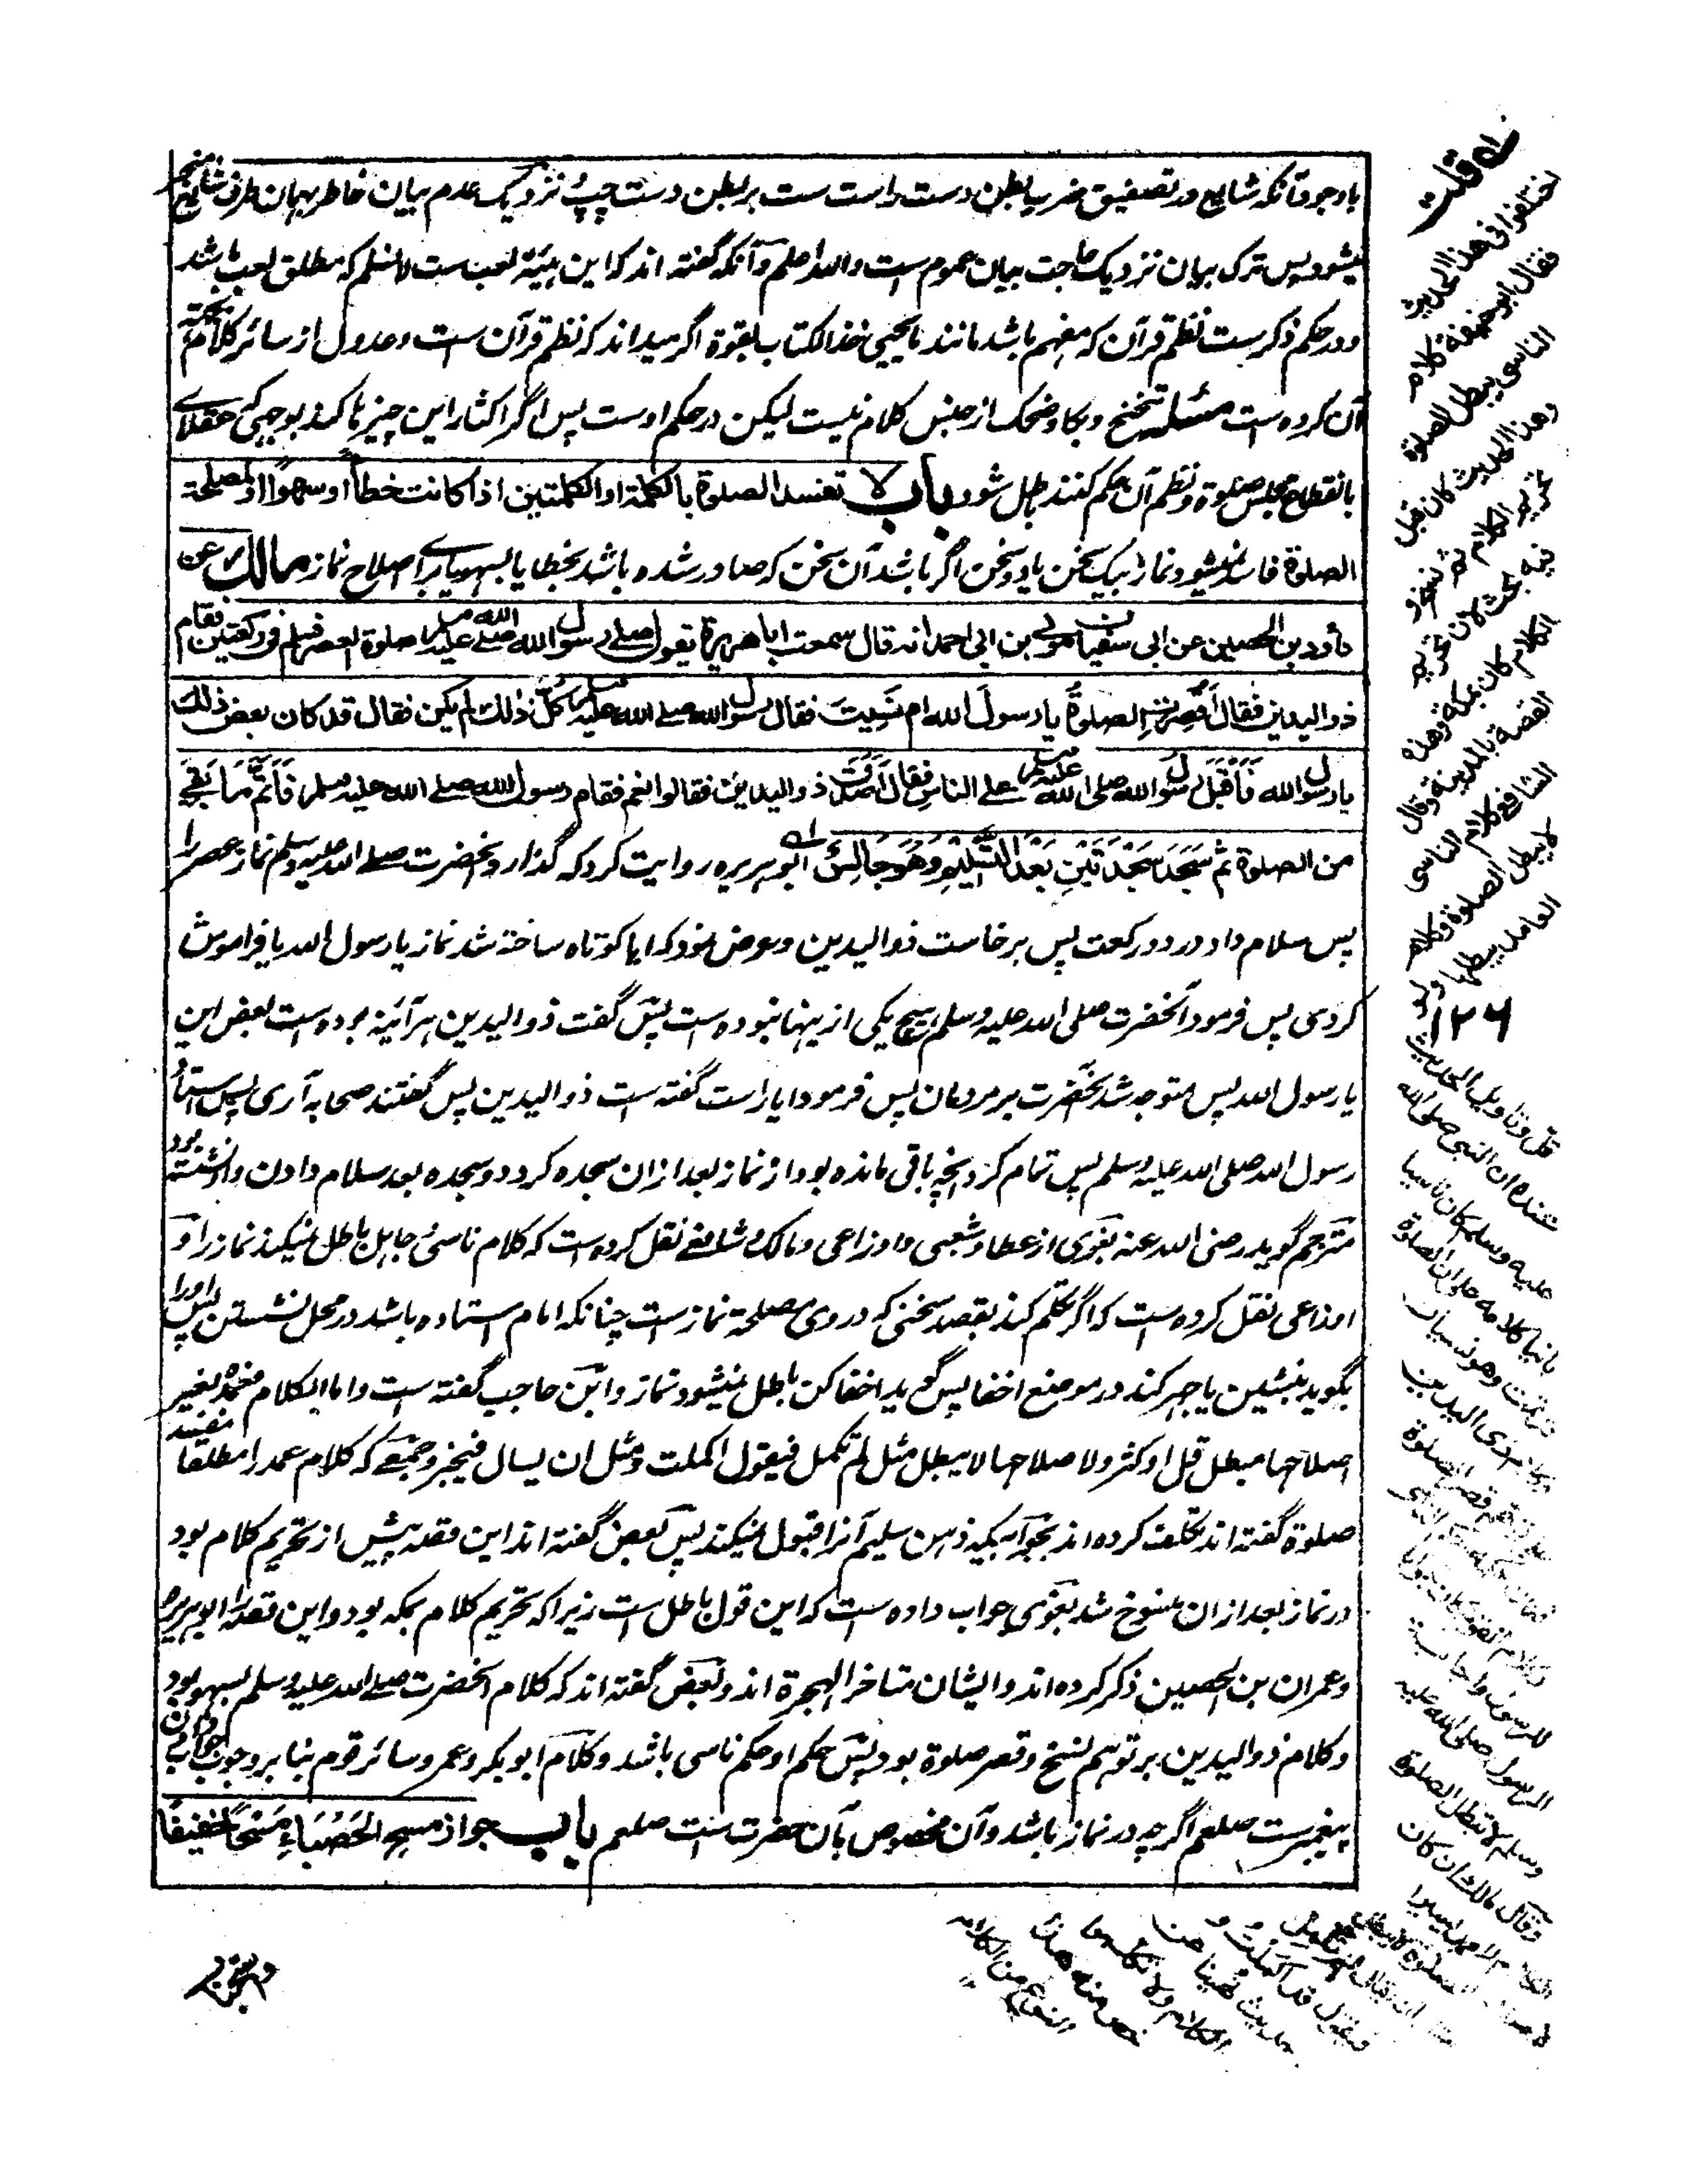 باوجود آنکه شایع در تصفیق ضرب بطن دست راست ست بر بطن دست چپ نزدیک عدم بیان خاطر بهمان طرف شایع منجر
میشود پس ترک بیان نزدیک حاجت بیان عموم است والله اعلم و آنکه گفته اند که این هیئة لعب ست لا نسلم که مطلق لعب باشد
و در حکم ذکر ست نظم قرآن که مفهم باشد مانند یا یحیی خذ الکتاب بقوة اگر میداند که نظم قرآن است و عدول از سائر کلام بجهة
آن کرده است مسئله تنحنح و بکا و ضحک از جنس کلام نیست لیکن در حکم اوست پس اگر اکثار این چیزها کند بوجهی که عقلای
بانقطاع مجلس صلوة و نظم آن حکم کنند باطل شود باب لا تفسد الصلوة بالکلمة او الکلمتین اذا کانت خطأ او سهوا او لمصلحة
الصلوة فاسد نمیشود نماز بیک سخن یا دو سخن اگر باشد آن سخن که صادر شده باشد بخطا یا بسهو یا برای اصلاح نماز مالك عن
داود بن الحصین عن ابی سفیان مولی بن ابی احمد انه قال سمعت ابا هریرة یقول صلی رسول الله صلی الله علیه وسلم صلوة العصر فسلم فی رکعتین فقام
ذو الیدین فقال أقصرت الصلوة یا رسول الله ام نسیت فقال رسول الله صلی الله علیه وسلم کل ذلك لم یکن فقال قد کان بعض ذلك
یا رسول الله فأقبل رسول الله صلی الله علیه وسلم علی الناس فقال أصدق ذو الیدین فقالوا نعم فقام رسول الله صلی الله علیه وسلم فأتم ما بقی
من الصلوة ثم سجد سجدتین بعد التسلیم وهو جالس ابو هریره روایت کرد که گذارد آنحضرت صلی الله علیه وسلم نماز عصر را
پس سلام داد در دو رکعت پس برخاست ذو الیدین و عرض نمود که ایا کوتاه ساخته شد نماز یا رسول الله یا فراموش
کردی پس فرمود آنحضرت صلی الله علیه وسلم هیچ یکی از ینها نبوده است پس گفت ذو الیدین هرآئینه بوده است بعض این
یا رسول الله پس متوجه شد آنحضرت بر مردمان پس فرمود ایا راست گفته است ذو الیدین پس گفتند صحابه آری پس استاد
رسول الله صلی الله علیه وسلم پس تمام کرد آنچه باقی مانده بود از نماز بعد ازان سجده کرد دو سجده بعد سلام دادن و او نشسته بود
مترجم گوید رضی الله عنه بغوی از عطا و شعبی و اوزاعی و مالک و شافعی نقل کرده است که کلام ناسی و جاهل باطل نمیکند نماز را و از
اوزاعی نقل کرده است که اگر تکلم کند بقصد سخنی که در وی مصلحة نماز ست چنانکه امام استاده باشد در محل نشستن پس او را
بگوید بنشین یا جهر کند در موضع اخفا پس گوید اخفا کن باطل نمیشود نماز و ابن حاجب گفته است واما الکلام فعمده لغیر
اصلاحها مبطل قل او کثر ولاصلاحها لا یبطل مثل لم تکمل فیقول اکملت ومثل ان یسال فیخبر و جمعی که کلام عمد را مطلقا مفسد
صلوة گفته اند تکلف کرده اند بجوابیکه ذهن سلیم آنرا قبول نمیکند پس بعض گفته اند این قصه پیش از تحریم کلام بود
در نماز بعد ازان منسوخ شد بغوی جواب داده ست که این قول باطل ست زیرا که تحریم کلام بمکه بود و این قصه را ابو هریره
و عمران بن الحصین ذکر کرده اند و ایشان متاخر الهجرة اند و بعض گفته اند که کلام آنحضرت صلی الله علیه وسلم بسهو بود
و کلام ذو الیدین بر توهم نسخ و قصر صلوة بود پس حکم او حکم ناسی باشد و کلام ابو بکر و عمر و سائر قوم بنا بر وجوب جواب
پیغمبر ست صلعم اگرچه در نماز باشد و آن مخصوص بآن حضرت ست صلعم باب جواز مسح الحصباء مسحا خفیفا
قلت
اختلفوا فی هذا الحدیث
فقال ابو حنیفة کلام
الناسی یبطل الصلوة
وهذا الحدیث کان قبل
تحریم الکلام ثم نسخ و
فیه بحث لان تحریم
الکلام کان بمکة وهذه
القصة بالمدینة وقال
الشافعی کلام الناسی
لا یبطل الصلوة وکلام
العامد یبطلها ولو
۱۲۶
قل وتاویل الحدیث
عنده ان النبی صلی الله
علیه وسلم کان ناسیا
بانیا کلامه علی ان الصلوة
تمت وهو نسیان
ذی الیدین
قصر الصلوة
للرسول واجابة
الرسول صلی الله علیه
وسلم لا تبطل الصلوة
وقال مالك ان کان